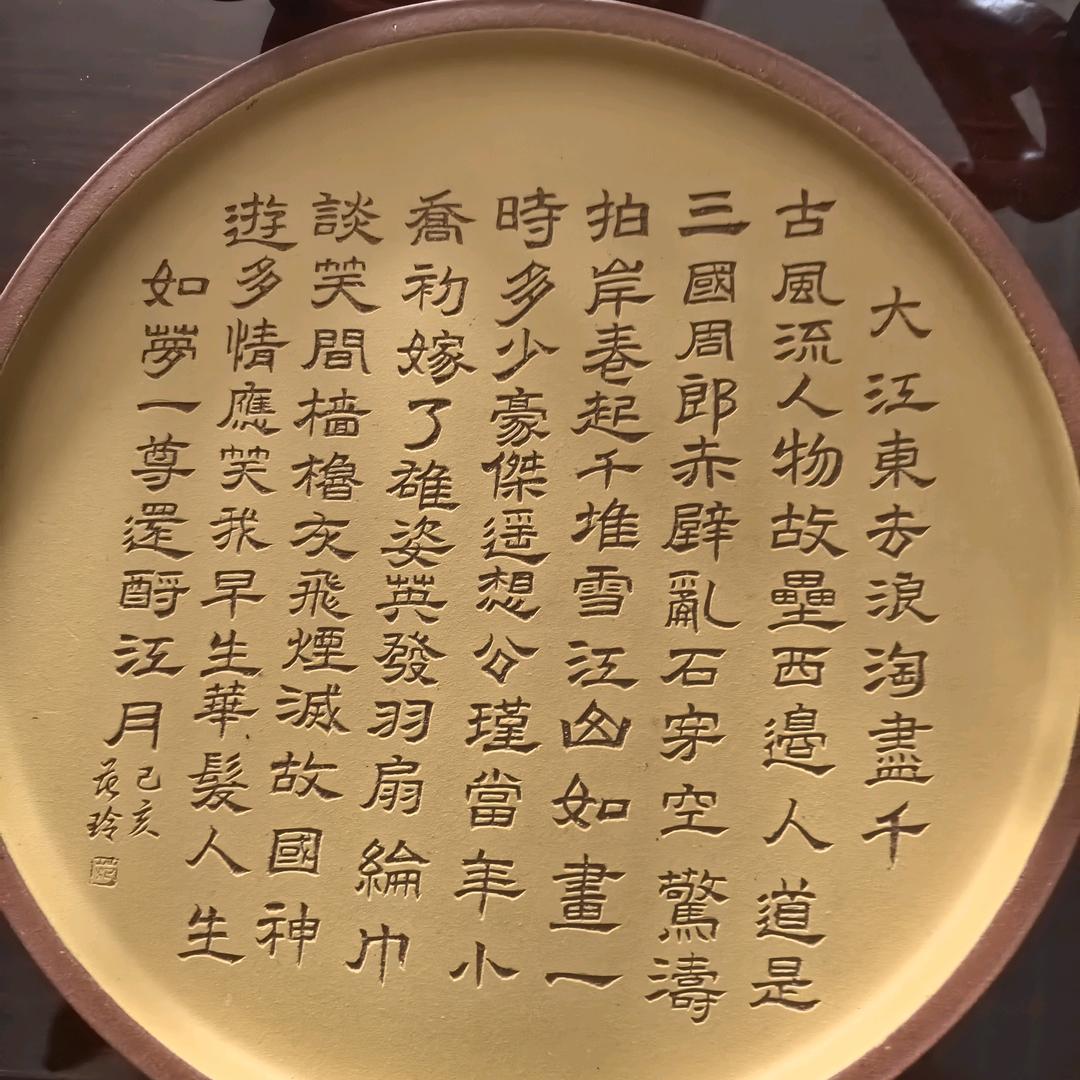 大江東去浪淘盡千
古風流人物故壘西邊人道是
三國周郎赤壁亂石穿空驚濤
拍岸卷起千堆雪江山如畫一
時多少豪傑遥想公瑾當年小
喬初嫁了雄姿英發羽扇綸巾
談笑間檣櫓灰飛煙滅故國神
遊多情應笑我早生華髮人生
如夢一尊還酹江月
己亥
玲